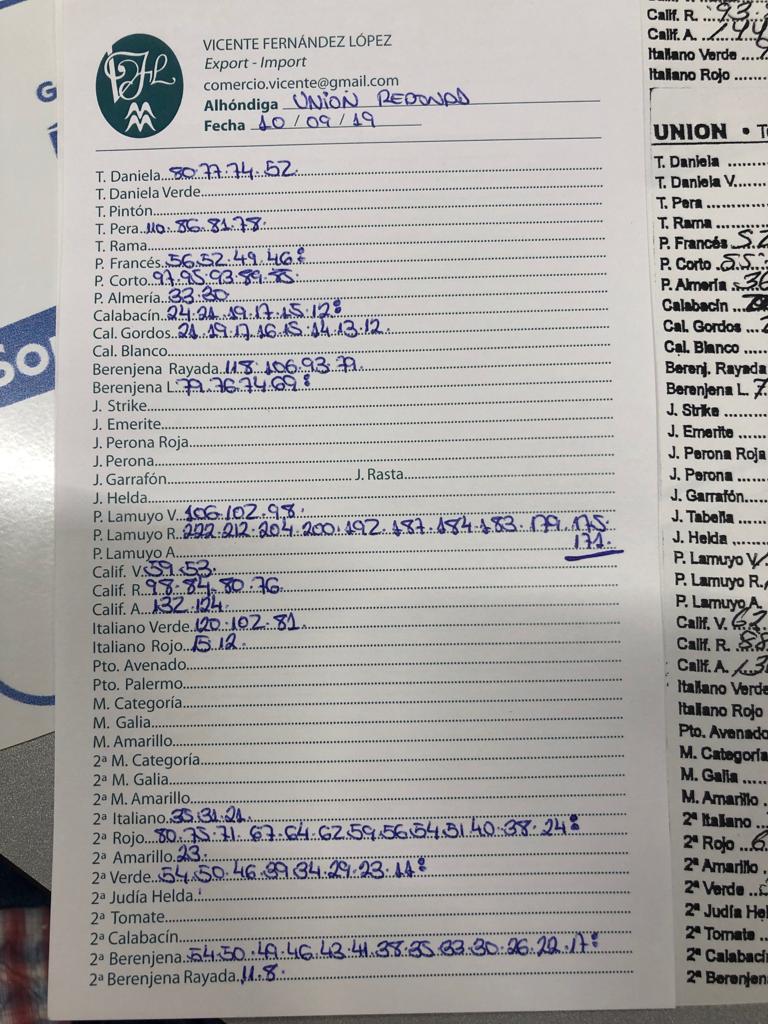 VICENTE FERNÁNDEZ LÓPEZ
Export - Import
comercio.vicente@gmail.com
Alhóndiga UNION REDONDA
Fecha 10/09/19
T. Daniela 80.77.74.52.
T. Daniela Verde
T. Pintón
T. Pera 110.86.81.78.
T. Rama
P. Francés 56.52.49.46:
P. Corto 97.95.93.89.85.
P. Almería 33.30
Calabacín 24.21.19.17.15.12:
Cal. Gordos 21.19.17.16.15.14.13.12.
Cal. Blanco
Berenjena Rayada 118.106.93.79.
Berenjena L. 79.76.74.69:
J. Strike
J. Emerite
J. Perona Roja
J. Perona
J. Garrafón J. Rasta
J. Helda
P. Lamuyo V. 106.102.98.
P. Lamuyo R. 222.212.204.200.192.187.184.183.179.175.
171.
P. Lamuyo A.
Calif. V. 59.53.
Calif. R. 98.84.80.76
Calif. A. 132.124.
Italiano Verde 120.102.81.
Italiano Rojo 15.12.
Pto. Avenado
Pto. Palermo
M. Categoría
M. Galia
M. Amarillo
2ª M. Categoría
2ª M. Galia
2ª M. Amarillo
2ª Italiano 35.31.21.
2ª Rojo 80.75.71.67.64.62.59.56.54.51.40.38.24:
2ª Amarillo 23.
2ª Verde 54.50.46.39.34.29.23.11:
2ª Judía Helda
2ª Tomate
2ª Calabacín
2ª Berenjena 54.50.49.46.43.41.38.35.33.30.26.22.17:
2ª Berenjena Rayada 11.8.
Calif. R.
Calif. A.
Italiano Verde
Italiano Rojo
UNION •
T. Daniela
T. Daniela V.
T. Pera
T. Rama
P. Francés
P. Corto
P. Almería
Calabacín
Cal. Gordos
Cal. Blanco
Berenj. Rayada
Berenjena L.
J. Strike
J. Emerite
J. Perona Roja
J. Perona
J. Garrafón
J. Tabella
J. Helda
P. Lamuyo V.
P. Lamuyo R.
P. Lamuyo A.
Calif. V.
Calif. R.
Calif. A.
Italiano Verde
Italiano Rojo
Pto. Avenado
M. Categoría
M. Galia
M. Amarillo
2ª Italiano
2ª Rojo
2ª Amarillo
2ª Verde
2ª Judía Hel
2ª Tomate
2ª Calabací
2ª Berenjen